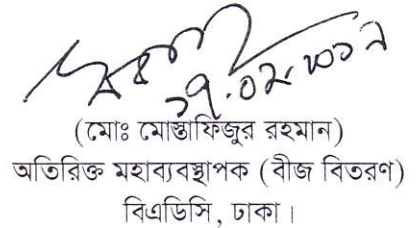 (মোঃ মোস্তাফিজুর রহমান)
অতিরিক্ত মহাব্যবস্থাপক (বীজ বিতরণ)
বিএডিসি, ঢাকা।